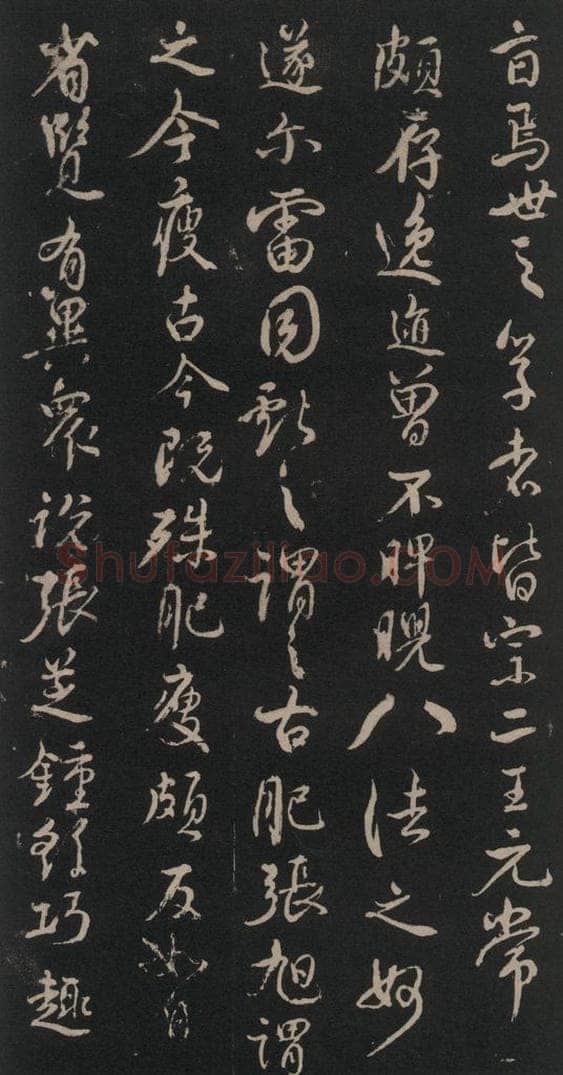 焉世之學者皆宗二王元常
頗存逸迹曾不睥睨八法之妙
遂尔雷同獻之謂之古肥張旭謂
之今瘦古今既殊肥瘦頗反如自
省覽有異衆說張芝鍾繇巧趣
Shufaziliao.COM